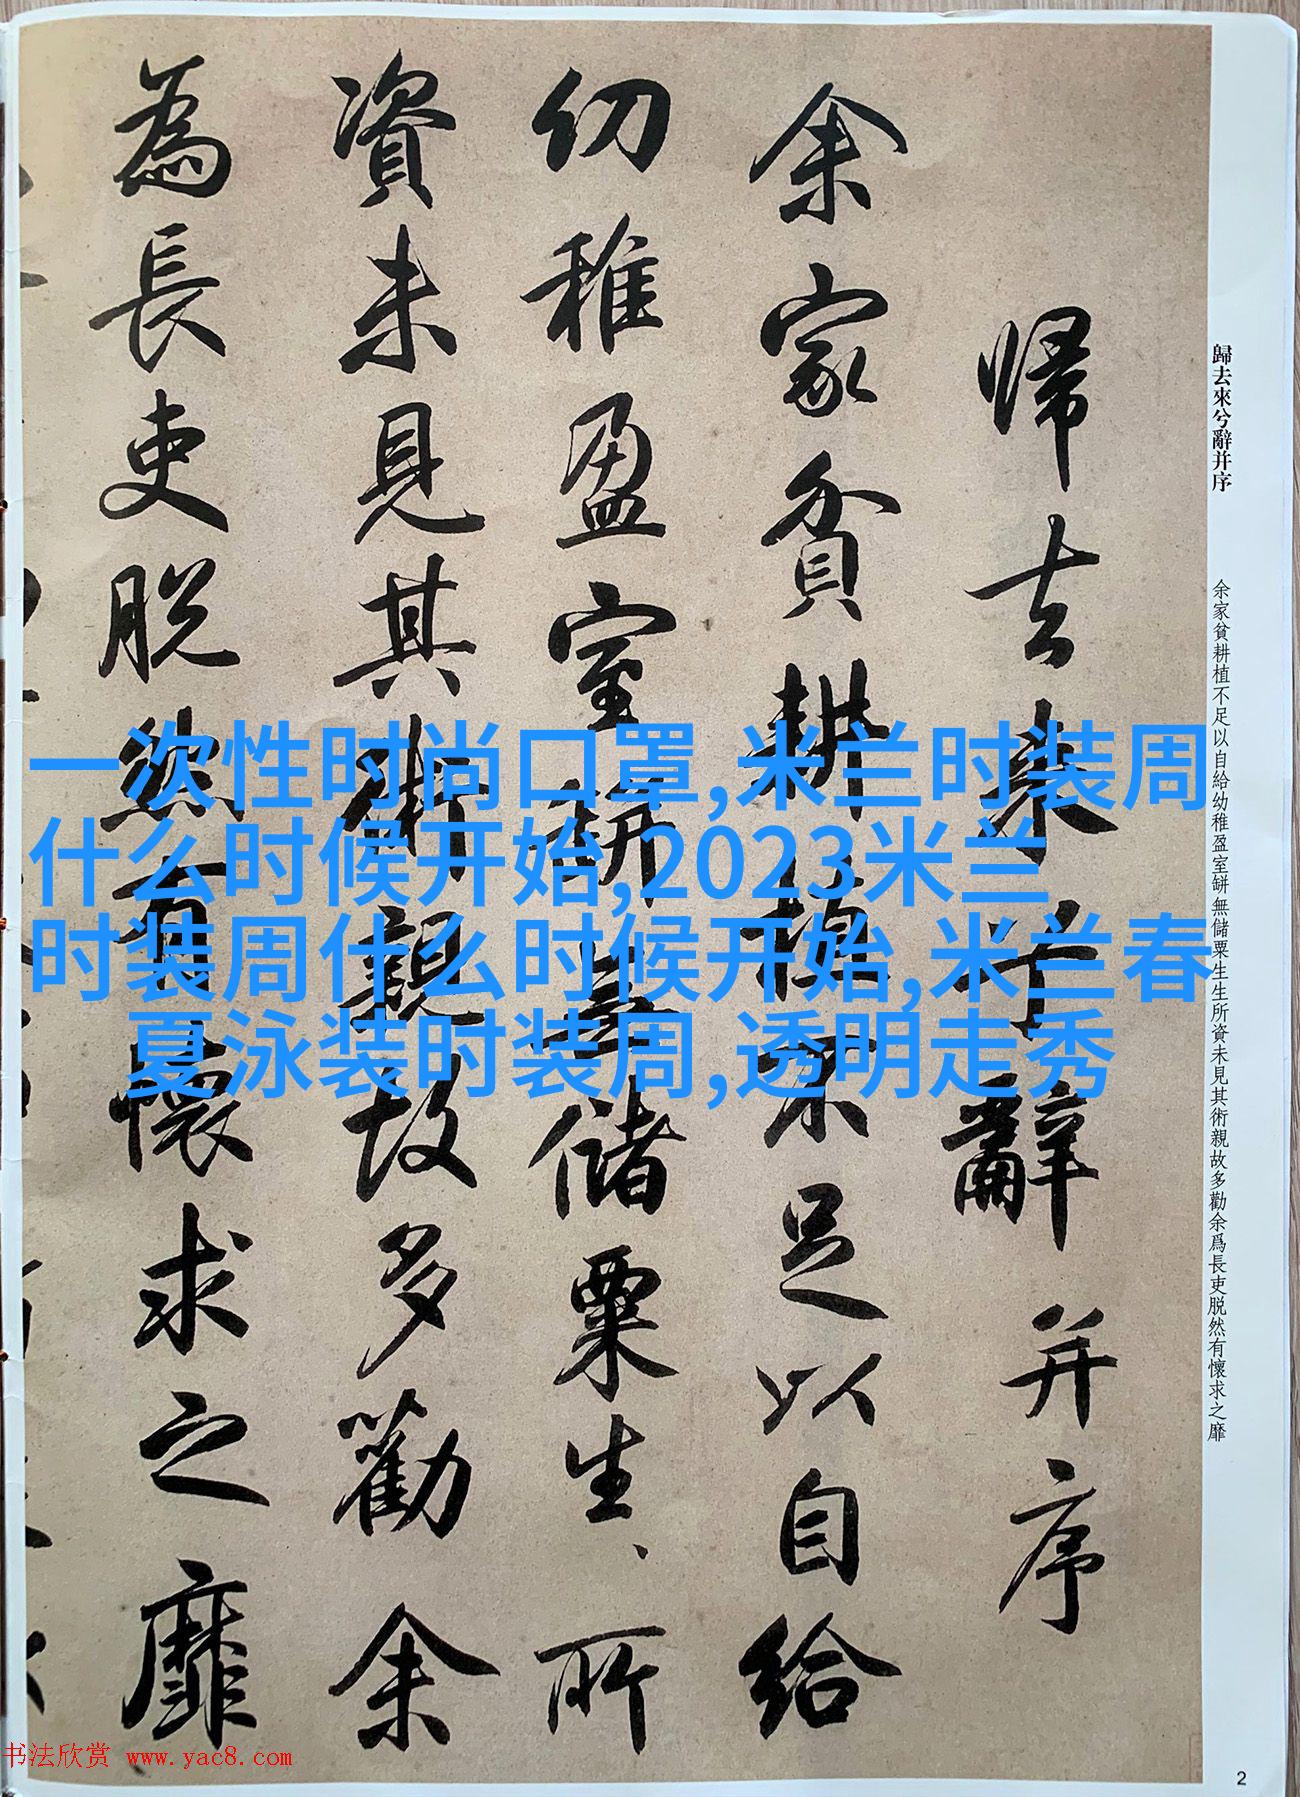 歸去來兮辭并序
余家貧耕植不足以自給幼稚盈室缾無儲粟生生所資未見其術親故多勸余爲長吏脱然有懷求之靡
歸去来兮辭并序
余家貧耕植不足以自給
幼稚盈室缾無儲粟生、所
資未見其術親故多勸余
為長吏脱然有懷求之靡
一次性时尚口罩,米兰时装周
什么时候开始,2023米兰
时装周什么时候开始,米兰春
夏泳装时装周,透明走秀
书法欣赏 www.yac8.com
2